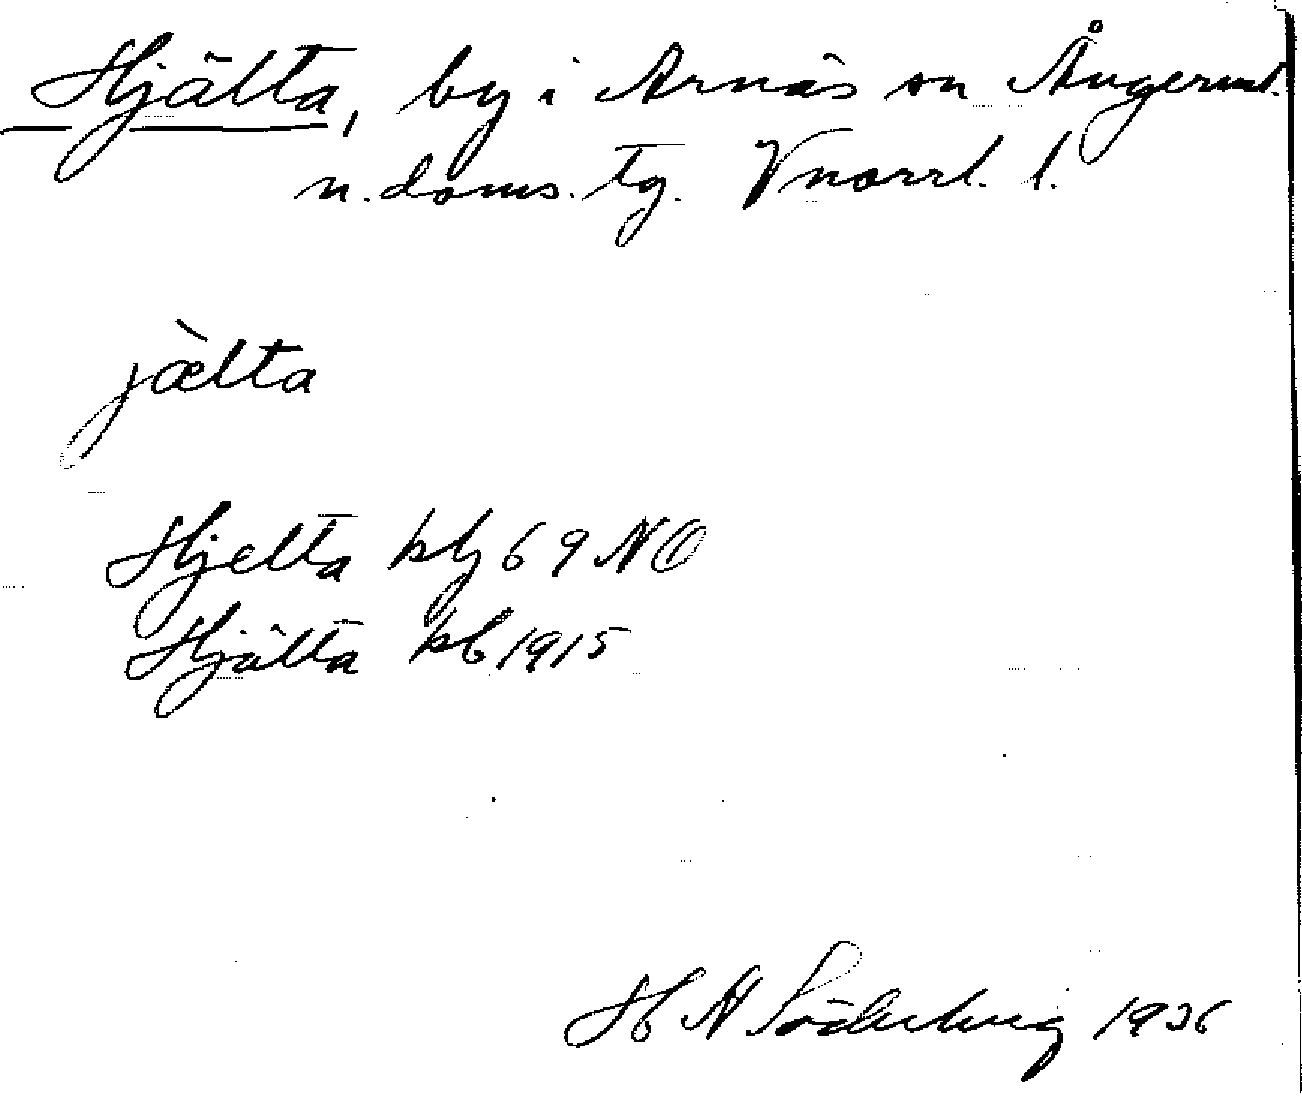 Hjälta, by i Arnäs sn Ångerml.
n. doms. tg. Vnorrl. l.
jæ̀lta
Hjelta kbj 69 NO
Hjälta kb 1915
H N Söderberg 1936